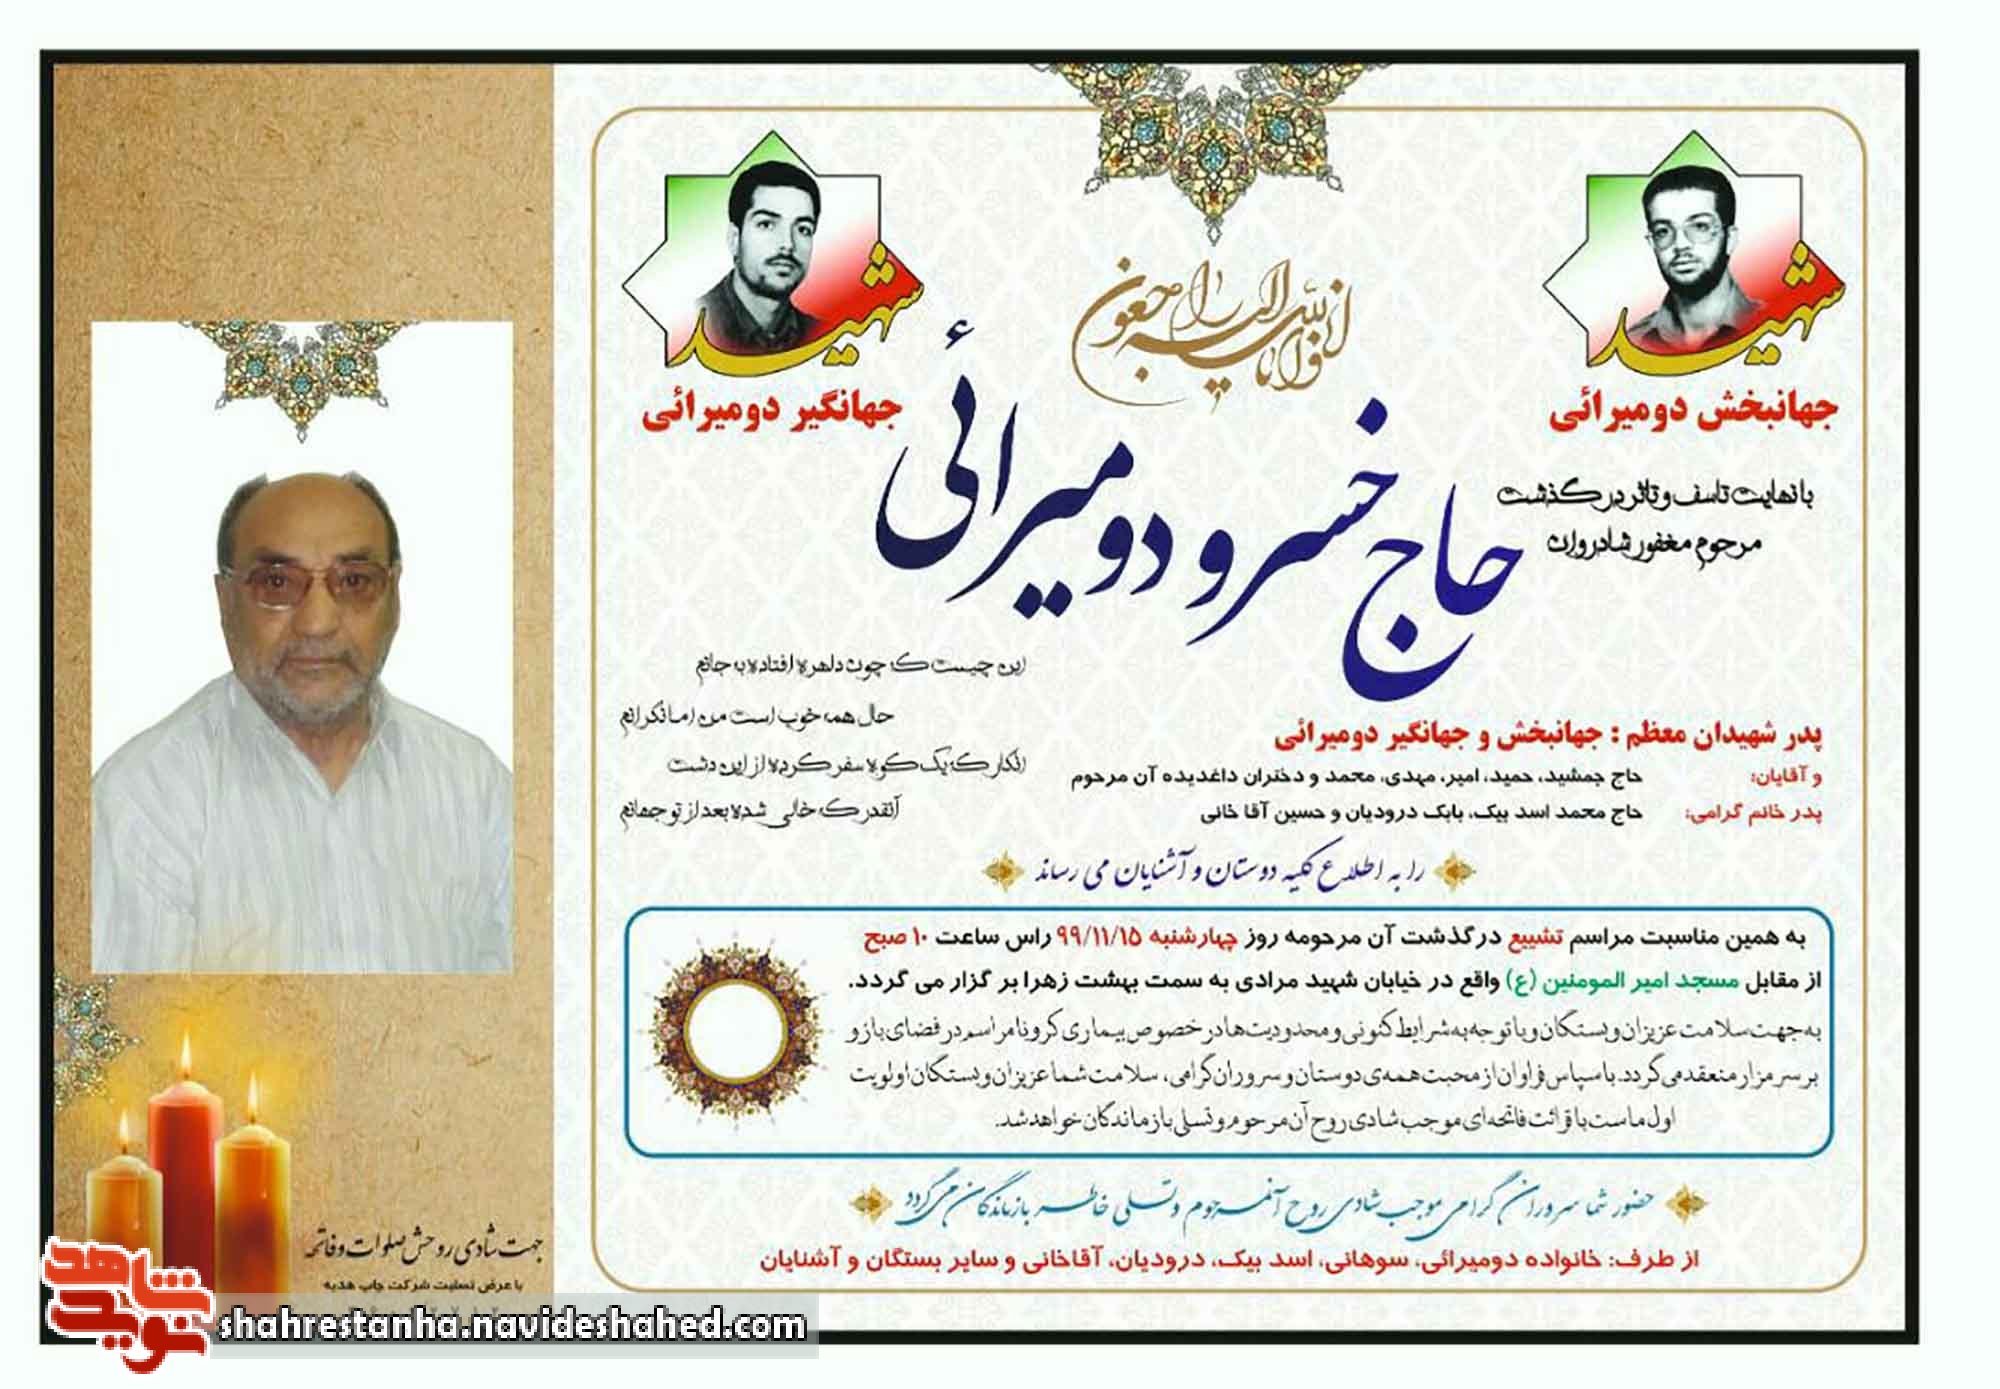 شهید
جهانبخش دومیرائی
شهید
جهانگیر دومیرائی
انا لله و انا الیه راجعون
با نهایت تاسف و تاثر درگذشت
مرحوم مغفور شادروان
حاج خسرو دومیرائی
این چیست که چون دلهره افتاده به جانم
حال همه خوب است من اما نگرانم
انگار که یک کوه سفر کرده از این دشت
آنقدر که خالی شده بعد از تو جهانم
پدر شهیدان معظم : جهانبخش و جهانگیر دومیرائی
و آقایان: حاج جمشید، حمید، امیر، مهدی، محمد و دختران داغدیده آن مرحوم
پدر خانم گرامی: حاج محمد اسد بیک، بابک درودیان و حسین آقا خانی
را به اطلاع کلیه دوستان و آشنایان می رساند
به همین مناسبت مراسم تشییع درگذشت آن مرحومه روز چهارشنبه ۹۹/۱۱/۱۵ راس ساعت ۱۰ صبح
از مقابل مسجد امیر المومنین (ع) واقع در خیابان شهید مرادی به سمت بهشت زهرا بر گزار می گردد.
به جهت سلامت عزیزان و بستگان و با توجه به شرایط کنونی و محدودیت ها در خصوص بیماری کرونا مراسم در فضای باز و
بر سر مزار منعقد می گردد. با سپاس فراوان از محبت همه ی دوستان و سروران گرامی، سلامت شما عزیزان و بستگان اولویت
اول ماست با قرائت فاتحه ای موجب شادی روح آن مرحوم و تسلی بازماندگان خواهد شد.
حضور شما سروران گرامی موجب شادی روح آنمرحوم و تسلی خاطر بازماندگان می گردد
از طرف: خانواده دومیرائی، سوهانی، اسد بیک، درودیان، آقاخانی و سایر بستگان و آشنایان
جهت شادی روحش صلوات و فاتحه
با عرض تسلیت شرکت چاپ هدیه
نوید شاهد
shahrestanha.navideshahed.com